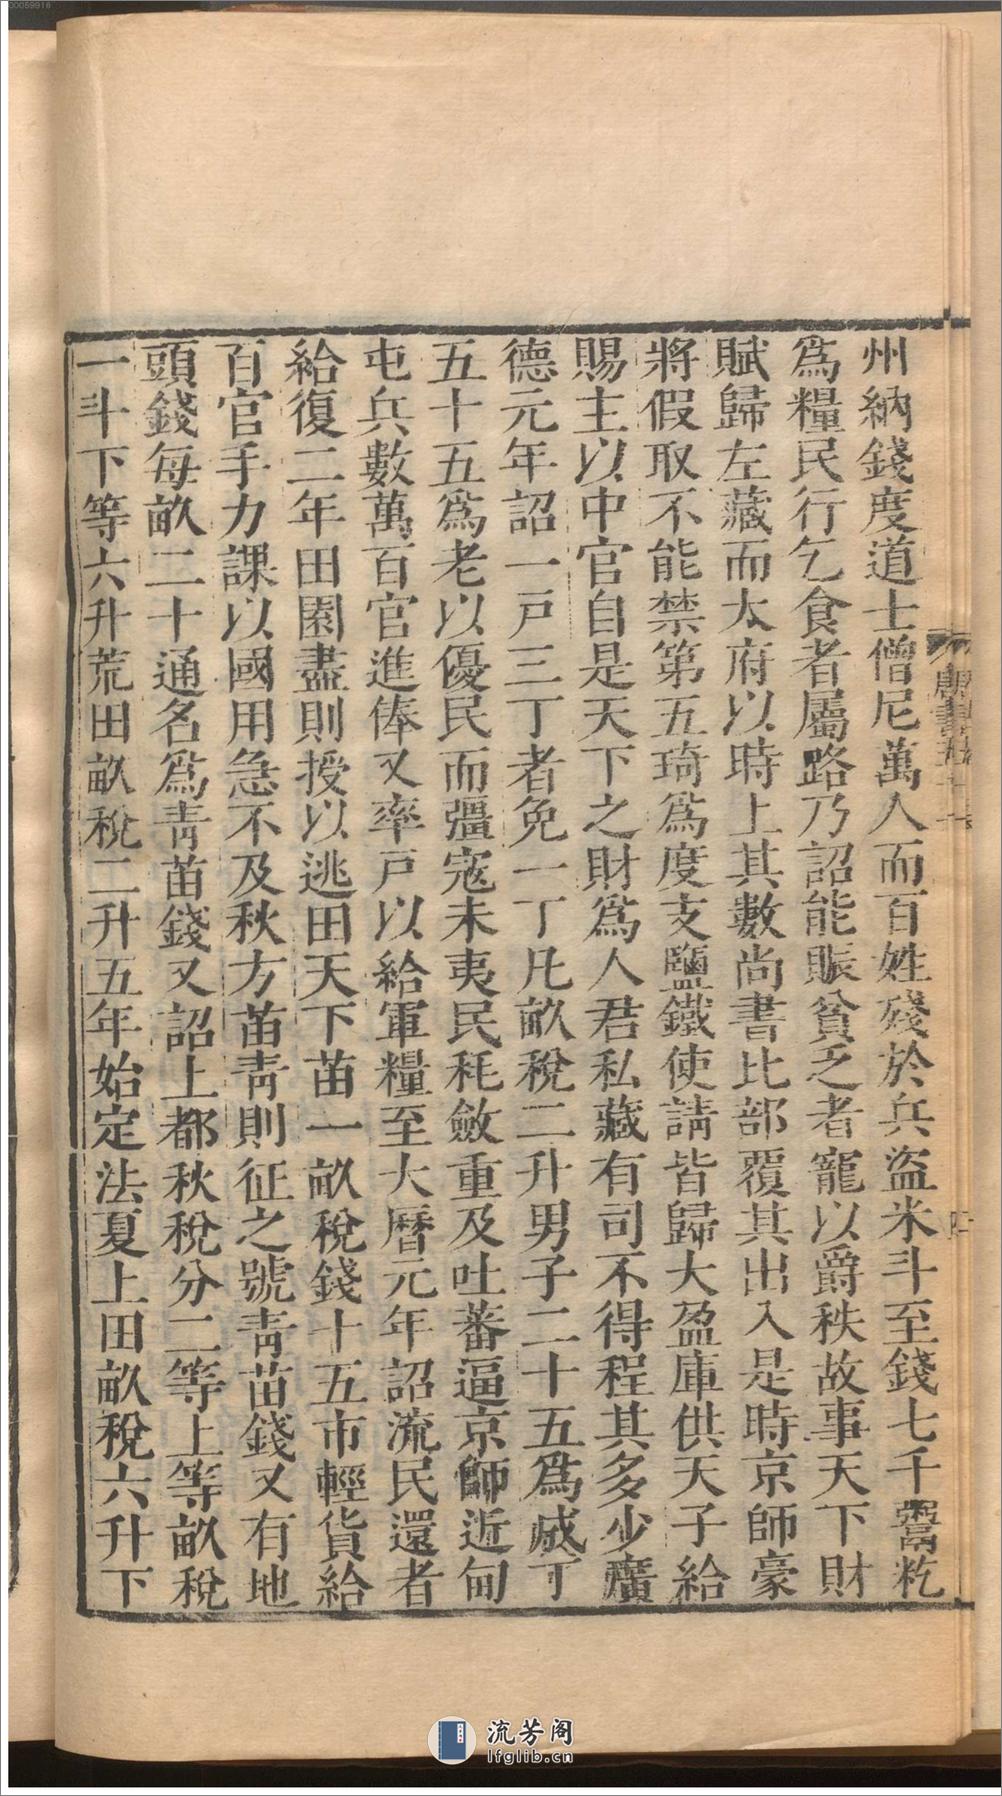 州納錢度道士僧尼萬人而百姓殘於兵盜米斗至錢七千鬻籺
爲糧民行乞食者屬路乃詔能賑貧乏者寵以爵秩故事天下財
賦歸左藏而太府以時上其數尚書比部覆其出入是時京師豪
將假取不能禁第五琦爲度支鹽鐵使請皆歸大盈庫供天子給
賜主以中官自是天下之財爲人君私藏有司不得程其多少廣
德元年詔一戸三丁者免一丁凡畝稅二升男子二十五爲成丁
五十五爲老以優民而彊寇未夷民耗斂重及吐蕃逼京師近甸
屯兵數萬百官進俸又率戸以給軍糧至大曆元年詔流民還者
給復二年田園盡則授以逃田天下苗一畝稅錢十五市輕貨給
百官手力課以國用急不及秋方苗靑則征之號靑苗錢又有地
頭錢每畝二十通名爲靑苗錢又詔上都秋稅分二等上等畝稅
一斗下等六升荒田畝稅二升五年始定法夏上田畝稅六升下
流芳阁
lfglib.cn
00059916